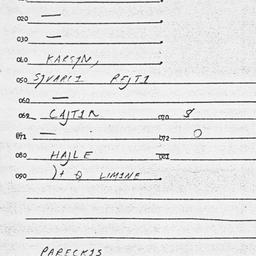 020 —
030 —
040 KARSYN,
050 SJVARCI REJTI
060 —
061 CAJTIN 070 8
071 — 072 0
080 HAJLE 081
090 )+ Q LIMINE
PARECKIS